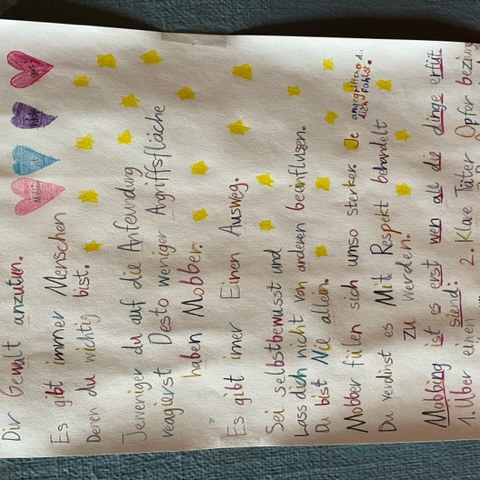 Dir Gewalt anzutun.
Es gibt immer Menschen
Deren du wichtig bist.
Jeweniger du auf die Anfeundung
reagierst Desto weniger Angriffsfläche
haben Mobber.
Es gibt imer Einen Ausweg.
Sei selbstbewusst und
Lass dich nicht von anderen beeinflusen.
Du bist Nie allein.
Mobber fülen sich umso sterker. Je angegriffener du
dich fühlst.
Du verdinst es Mit Respekt behandelt
zu werden.
Mobbing ist es erst wen all die dinge erfüt
siend:
1. Über einen 2. Klare Täter Opfer beziung